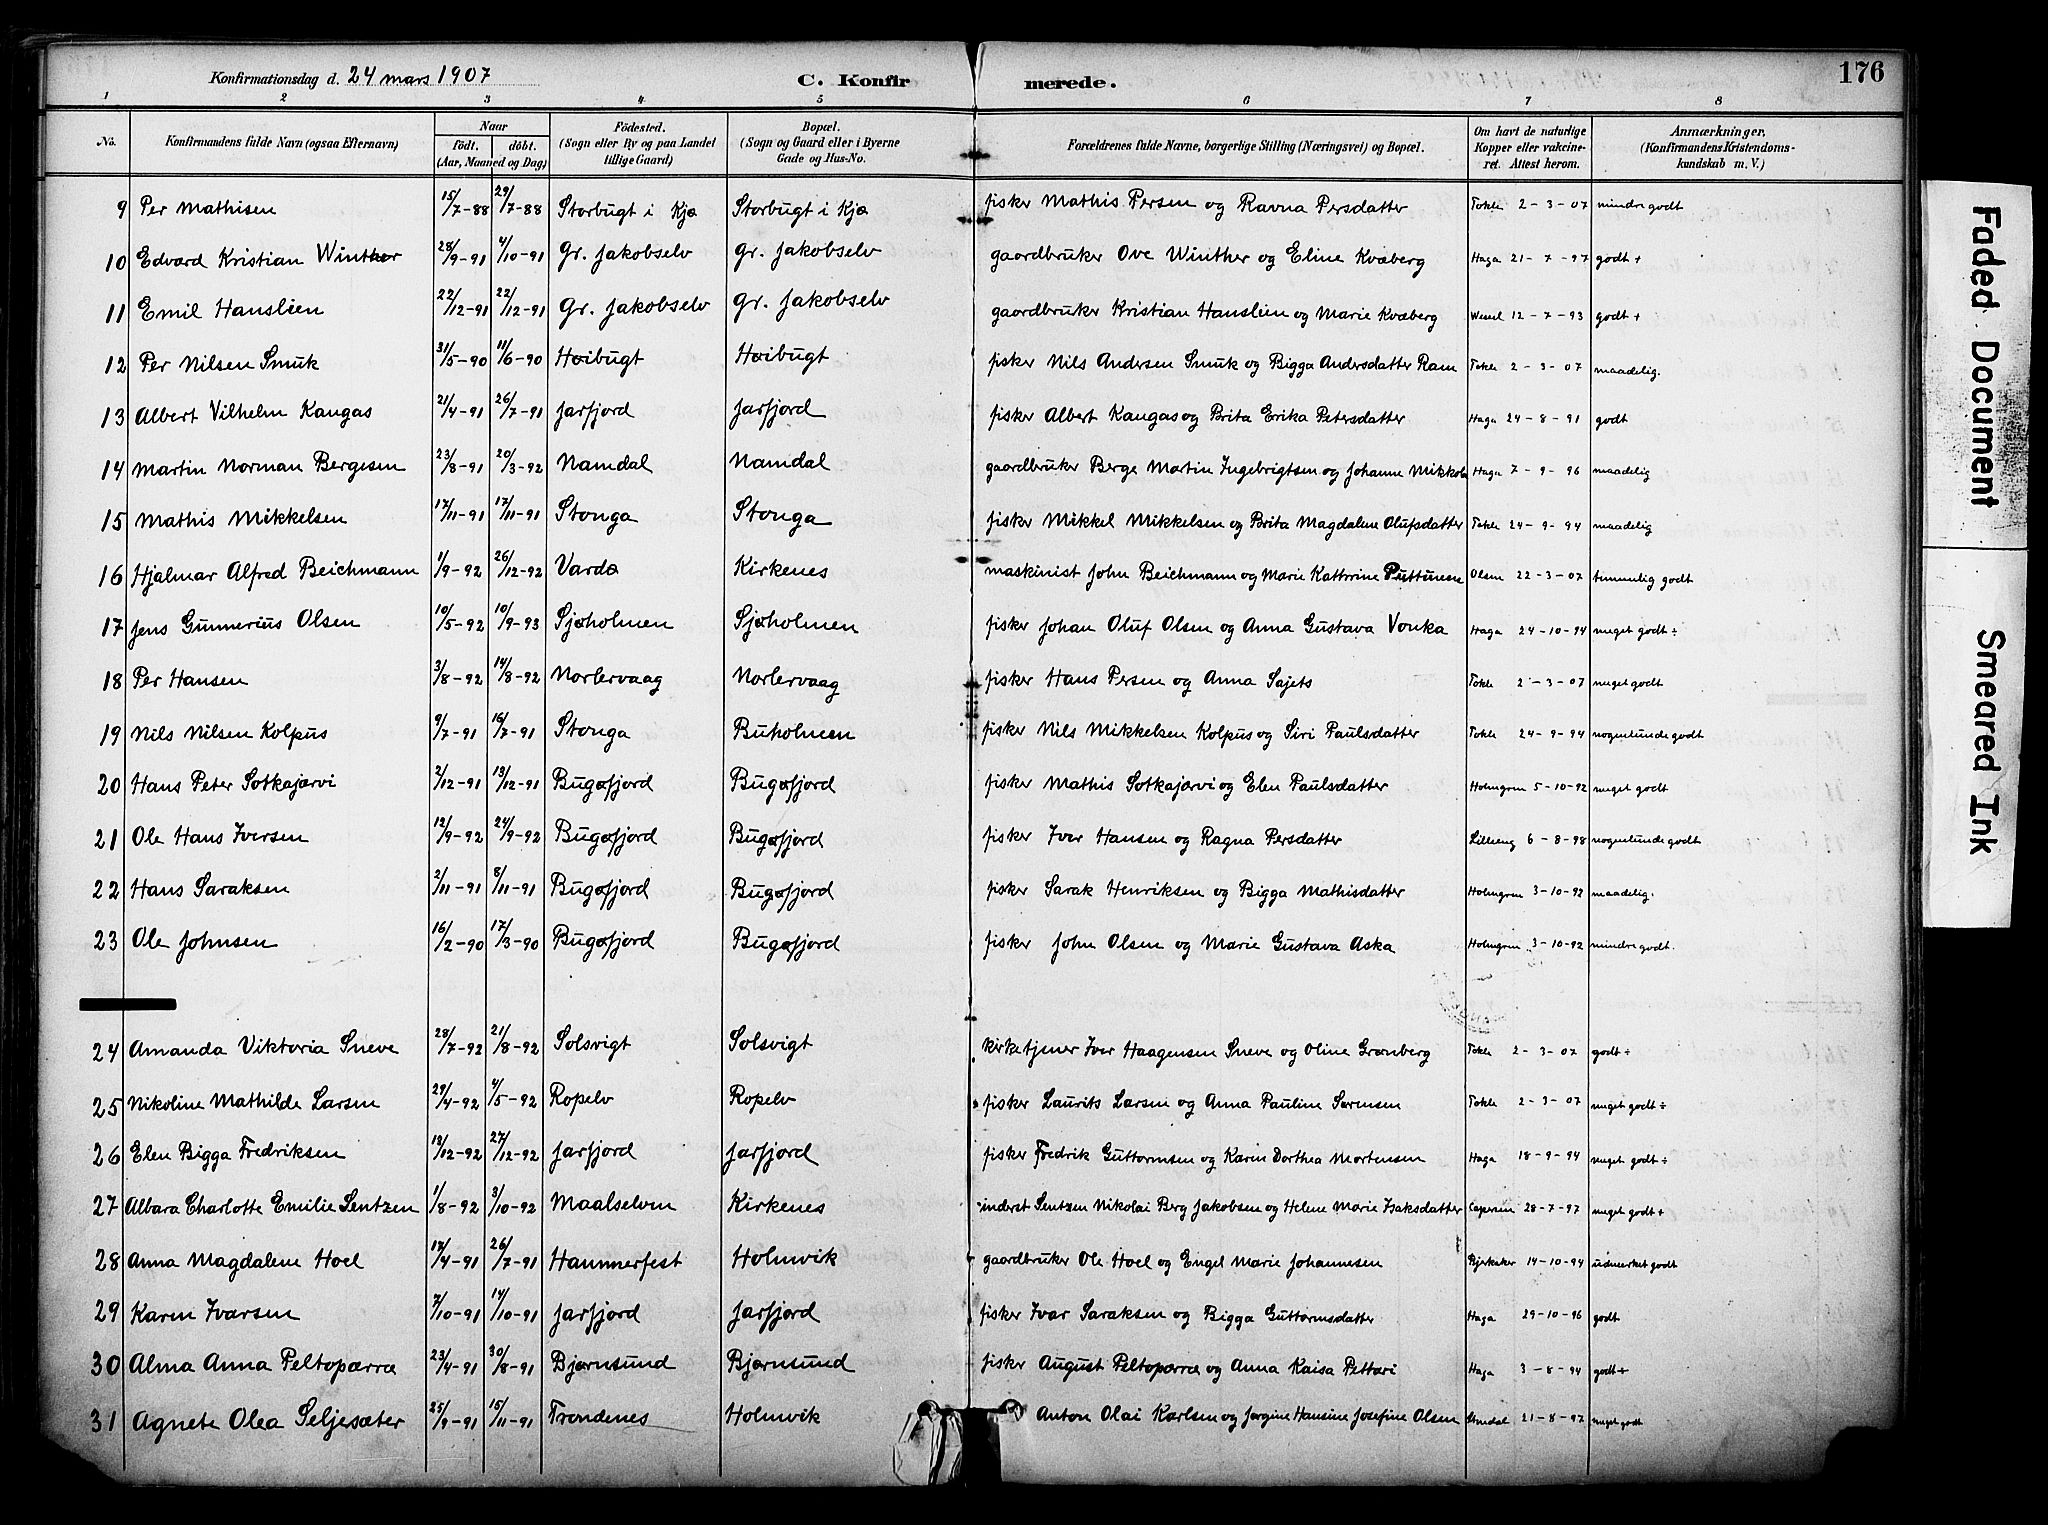 Konfirmationsdag d. 24 mars 1907 C. Konfirmerede. 176
1 2 3 4 5 6 7 8
No. Konfirmandens fulde Navn (ogsaa Efternavn) Naar födt. döbt. (Aar, Maaned og Dag) Födested. (Sogn eller By og paa Landet tillige Gaard) Bopæl. (Sogn og Gaard eller i Byerne Gade og Hus-No. Forældrenes fulde Navne, borgerlige Stilling (Næringsvei) og Bopæl. Om havt de naturlige Kopper eller vakcineret. Attest herom. Anmærkninger. (Konfirmandens Kristendomskundskab m. V.)
9 Per Mathisen 15/7-88 29/7-88 Storbugt i Kjø Storbugt i Kjø fisker Mathis Persen og Ravna Persdatter Tokle 2-3-07 mindre godt
10 Edvard Kristian Winther 28/9-91 4/10-91 Gr. Jakobselv Gr. Jakobselv gaardbruker Ove Winther og Eline Kvæberg Haga 21-7-97 godt +
11 Emil Hanslien 22/12-91 22/12-91 Gr. Jakobselv Gr. Jakobselv gaardbruker Kristian Hanslien og Marie Kvæberg Wessel 12-7-93 godt +
12 Per Nilsen Smuk 31/5-90 11/6-90 Høibugt Høibugt fisker Nils Andersen Smuk og Bigga Andersdatter Ram Tokle 2-3-07 maadelig.
13 Albert Vilhelm Kangas 21/4-91 26/7-91 Jarfjord Jarfjord fisker Albert Kangas og Brita Erika Petersdatter Haga 24-8-91 godt
14 Martin Norman Bergesen 23/8-91 20/3-92 Namdal Namdal gaardbruker Berge Martin Ingebrigtsen og Johanne Mikkola Haga 7-9-96 maadelig
15 Mathis Mikkelsen 17/11-91 17/11-91 Stonga Stonga fisker Mikkel Mikkelsen og Brita Magdalene Olufsdatter Tokle 24-9-94 maadelig
16 Hjalmar Alfred Beichmann 1/9-92 26/12-92 Vardø Kirkenes maskinist John Beichmann og Marie Kathrine Puttunen Olsen 22-3-07 temmelig godt
17 Jens Gunnerius Olsen 10/5-92 10/9-93 Sjøholmen Sjøholmen fisker Johan Oluf Olsen og Anna Gustava Vonka Haga 24-10-94 meget godt ÷
18 Per Hansen 3/8-92 14/8-92 Norlervaag Norlervaag fisker Hans Persen og Anna Sajets Tokle 2-3-07 meget godt
19 Nils Nilsen Kolpus 9/7-91 16/7-91 Stonga Buholmen fisker Nils Mikkelsen Kolpus og Siri Paulsdatter Tokle 24-9-94 nogenlunde godt
20 Hans Peter Sotkajærvi 2/12-91 13/12-91 Bugøfjord Bugøfjord fisker Mathis Sotkajærvi og Elen Paulsdatter Holmgren 5-10-92 meget godt
21 Ole Hans Iversen 12/9-92 24/9-92 Bugøfjord Bugøfjord fisker Iver Hansen og Ragna Persdatter Lilleeng 6-8-98 nogenlunde godt
22 Hans Saraksen 2/11-91 8/11-91 Bugøfjord Bugøfjord fisker Sarak Henriksen og Bigga Mathisdatter Holmgren 3-10-92 maadelig.
23 Ole Johnsen 16/2-90 17/3-90 Bugøfjord Bugøfjord fisker John Olsen og Marie Gustava Aska Holmgren 3-10-92 mindre godt.
24 Amanda Viktoria Sneve 28/7-92 21/8-92 Solsvigt Solsvigt kirketjener Iver Haagensen Sneve og Oline Grønberg Tokle 2-3-07 godt ÷
25 Nikoline Mathilde Larsen 29/4-92 4/5-92 Ropelv Ropelv fisker Laurits Larsen og Anna Pauline Sørensen Tokle 2-3-07 meget godt ÷
26 Elen Bigga Fredriksen 13/12-92 27/12-92 Jarfjord Jarfjord fisker Fredrik Guttormsen og Karin Dorthea Mortensen Haga 18-9-94 meget godt ÷
27 Albara Charlotte Emilie Sentzen 1/8-92 3/10-92 Maalselven Kirkenes inderst Sentzen Nikolai Berg Jakobsen og Helene Marie Isaksdatter 28-7-97 meget godt +
28 Anna Magdalene Hoel 17/4-91 26/7-91 Hammerfest Holmvik gaardbruker Ole Hoel og Engel Marie Johannesen Bjerkaker 14-10-94 udmerket godt
29 Karen Ivarsen 7/10-91 14/10-91 Jarfjord Jarfjord fisker Ivar Saraksen og Bigga Guttormsdatter Haga 29-10-96 godt
30 Alma Anna Peltopærræ 23/4-91 30/8-91 Bjørnsund Bjørnsund fisker August Peltopærræ og Anna Kaisa Pettæri Haga 3-8-94 godt +
31 Agnete Olea Seljesæter 25/9-91 15/11-91 Trondenes Holmvik Anton Olai Karlsen og Jørgine Hansine Josefine Olsen 21-8-97 meget godt
Faded Document
Smeared Ink